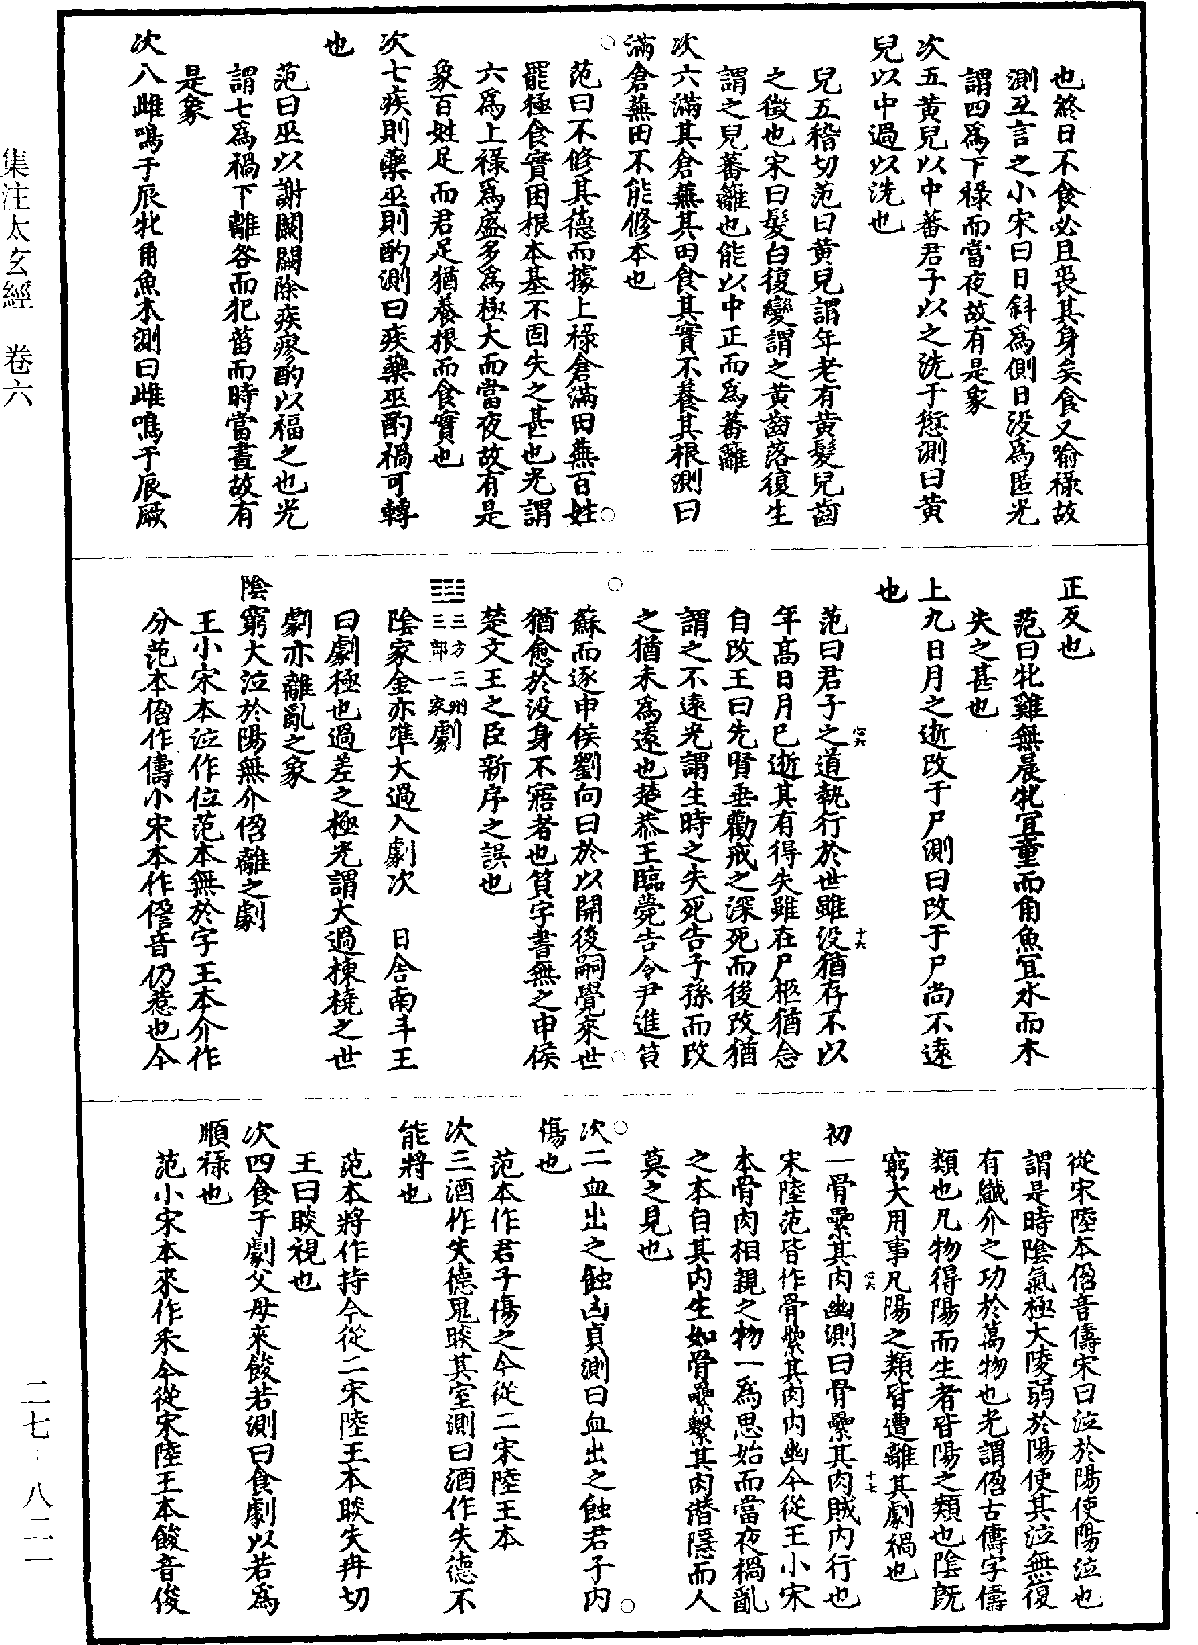 也終日不食必且喪其身矣食又踰祿故
測互言之小宋曰日斜爲側日没爲匿光
謂四爲下祿而當夜故有是象
次五黄兒以中蕃君子以之洗于愆測曰黄
兒以中過以洗也
兒五稽切范曰黄兒謂年老有黄髮兒齒
之徵也宋曰髮白復變謂之黄齒落復生
謂之兒蕃籬也能以中正而爲蕃籬
次六滿其倉蕪其田食其實不養其根測曰
滿倉蕪田不能修本也
范曰不修其德而據上祿倉滿田蕪百姓
罷極食實困根本基不固失之甚也光謂
六爲上祿爲盛多爲極大而當夜故有是
象百姓足而君足猶養根而食實也
次七疾則藥巫則酌測曰疾藥巫酌禍可轉
也
范曰巫以謝闕闢除疾瘳酌以福之也光
謂七爲禍下離咎而犯菑而時當晝故有
是象
次八雌鳴于辰牝角魚木測曰雌鳴于辰厥
正反也
范曰牝雞無晨牝宜童而角魚宜水而木
失之甚也
上九日月之逝改于尸測曰改于尸尚不遠
也
范曰君子之道執行於世雖没猶存不以
年高日月已逝其有得失雖在尸柩猶念
自改王曰先賢垂勸戒之深死而後改猶
謂之不遠光謂生時之失死告子孫而改
之猶未爲遠也楚恭王臨薨告令尹進筫
蘇而逐申侯劉向曰於以開後嗣覺來世
猶愈於没身不寤者也筫字書無之申侯
楚文王之臣新序之誤也
三方三州三部一家劇
陰家金亦準大過入劇次 日舍南斗王
曰劇極也過差之極光謂大過棟橈之世
劇亦離亂之象
陰窮大泣於陽無介儔離之劇
王小宋本泣作位范本無於字王本介作
分范本㑳作儔小宋本作㒓音仍惹也今
從宋陸本㑳音儔宋曰泣於陽使陽泣也
謂是時陰氣極大陵弱於陽使其泣無復
有纖介之功於萬物也光謂㑳古儔字儔
類也凡物得陽而生者皆陽之類也陰既
窮大用事凡陽之類皆遭離其劇禍也
初一骨纍其肉幽測曰骨纍其肉賊内行也
宋陸范皆作骨縈其肉内幽今從王小宋
本骨肉相親之物一爲思始而當夜禍亂
之本自其内生如骨纍繫其肉潛隱而人
莫之見也
次二血出之蝕凶貞測曰血出之蝕君子内
傷也
范本作君子傷之今從二宋陸王本
次三酒作失德鬼睒其室測曰酒作失德不
能將也
范本將作持今從二宋陸王本睒失冉切
王曰睒視也
次四食于劇父母來餕若測曰食劇以若爲
順祿也
范小宋本來作釆今從宋陸王本餕音俊
集注太玄經 卷六
二七·八二一